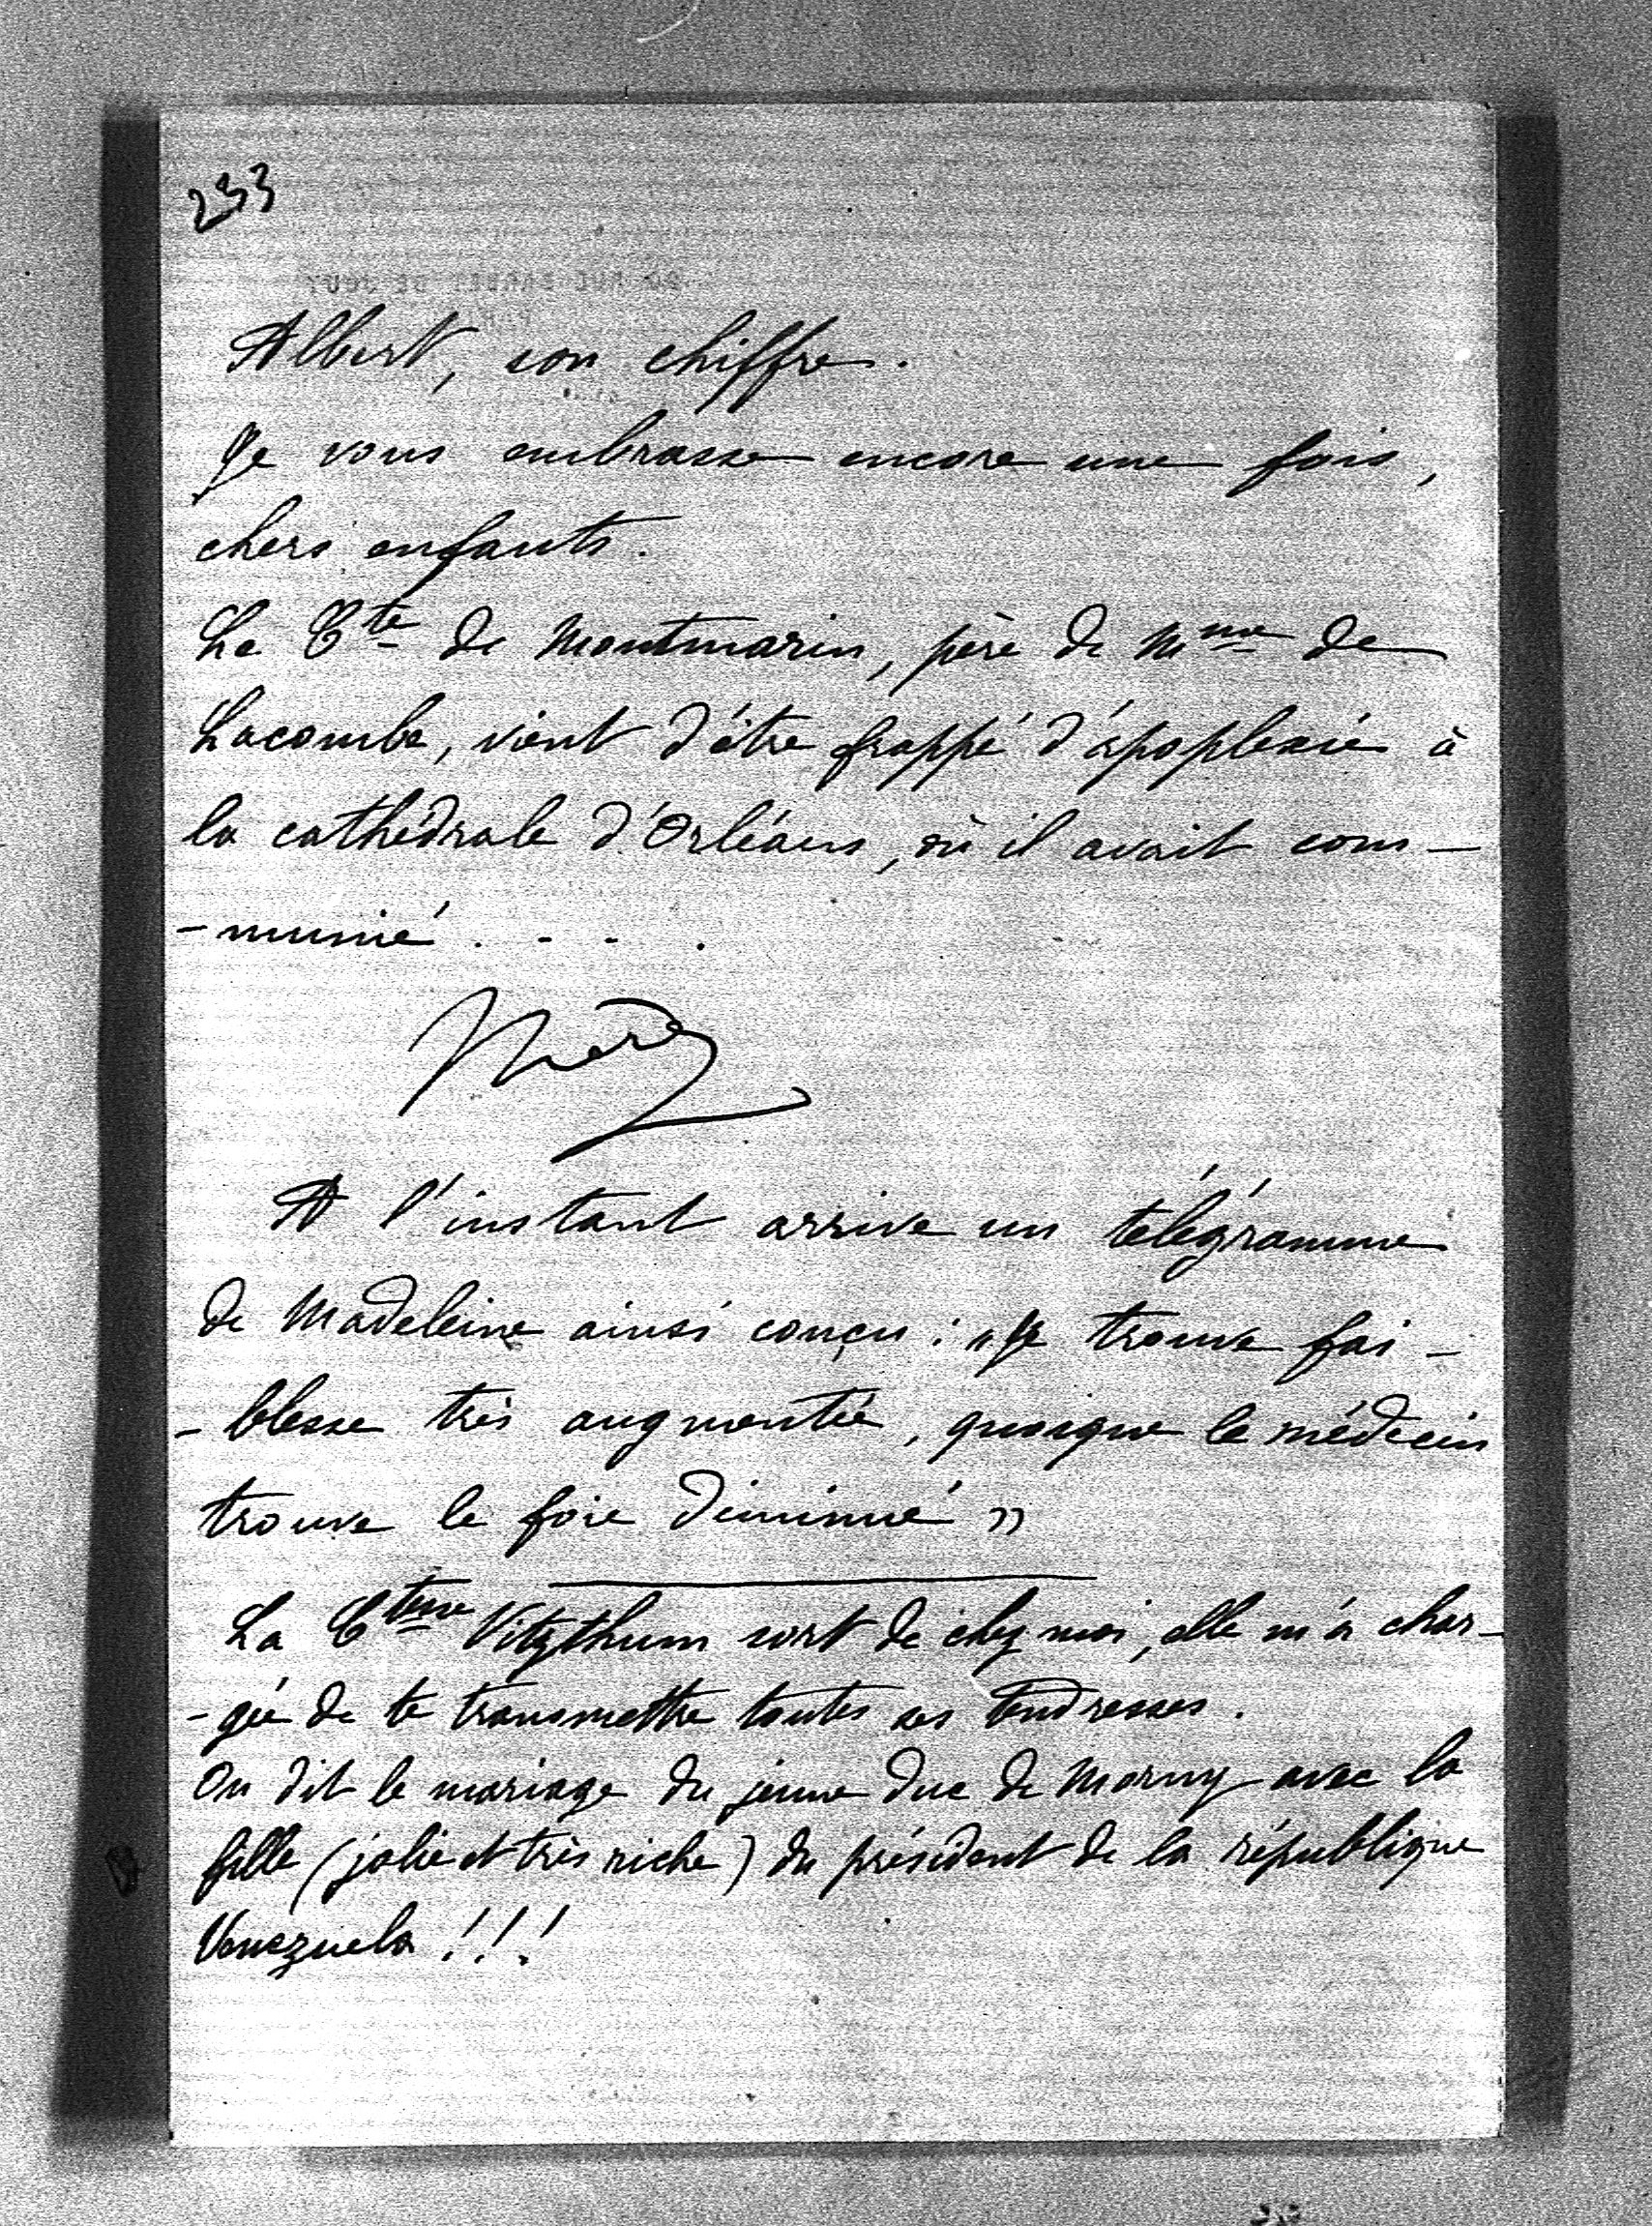 233
Albert, son chiffre.
Je vous embrasse encore une fois,
chers enfants.
Le Cte de Montmarin, père de Mme de
Lacombe, vient d'être frappé d'apoplexie à
la cathédrale d'Orléans, où il avait com-
-munié . . . .
Mère
A l'instant arrive un télégramme
de Madeleine ainsi conçu : „Je trouve fai-
-blesse très augmentée, quoique le médecin
trouve le foie diminué"
La Ctesse Vitzthum sort de chez moi, elle m'a char-
-gée de te transmettre toutes ses tendresses.
On dit le mariage du jeune duc de Morny avec la
fille (jolie et très riche) du président de la république
Venezuela !!!